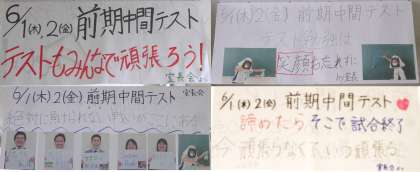 6/1(木)、2(金) 前期中間テスト
テストもみんなで頑張ろう!
室長会より
6/1(木)2(金)前期中間テスト
テスト勉強は
笑顔も忘れずに
6/1(木)2(金)前期中間テスト
室長会
絶対に負けられない戦いがここにある
6/1(木)2(金)前期中間テスト
諦めたらそこで試合終了
今頑張らなくていつ頑張る
室長会より